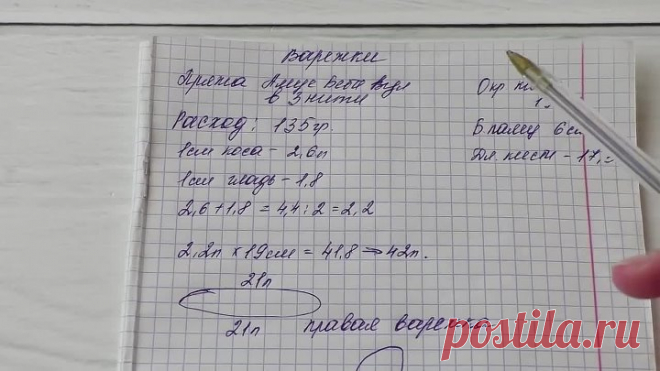 Варежки
Пряжа Ализе беби вул
в 3 нити
Расход: 135гр.
1см коса - 2,6п
1см гладь - 1,8
2,6 + 1,8 = 4,4 : 2 = 2,2
2,2п × 19см = 41,8 ⇒ 42п.
21п
21п правая варежка
Окр
1
Б палец 6см
Дл. кисти - 17,
postila.ru